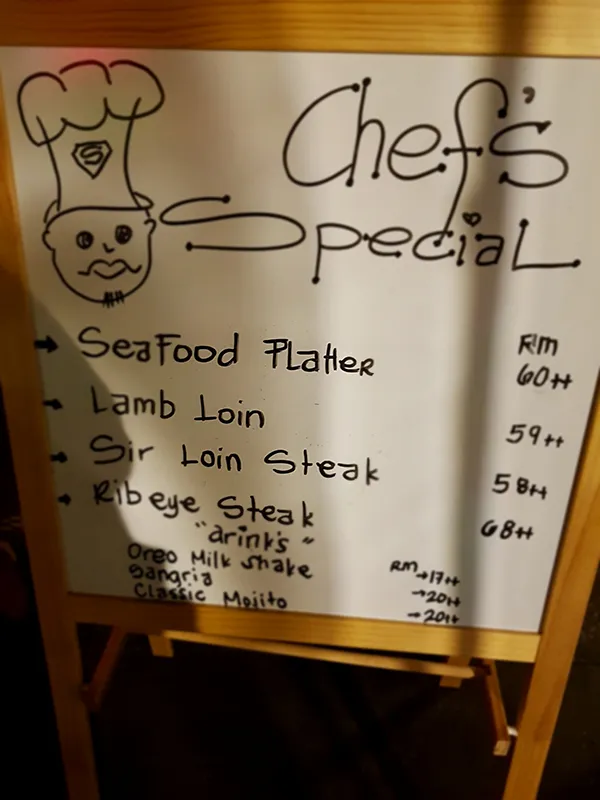 S
Chef's
Special
RM
→ Seafood Platter 60++
→ Lamb Loin 59++
→ Sir Loin Steak 58++
→ Ribeye Steak 68++
"drink's"
Oreo Milk Shake RM →17++
Sangria →20++
Classic Mojito →20++